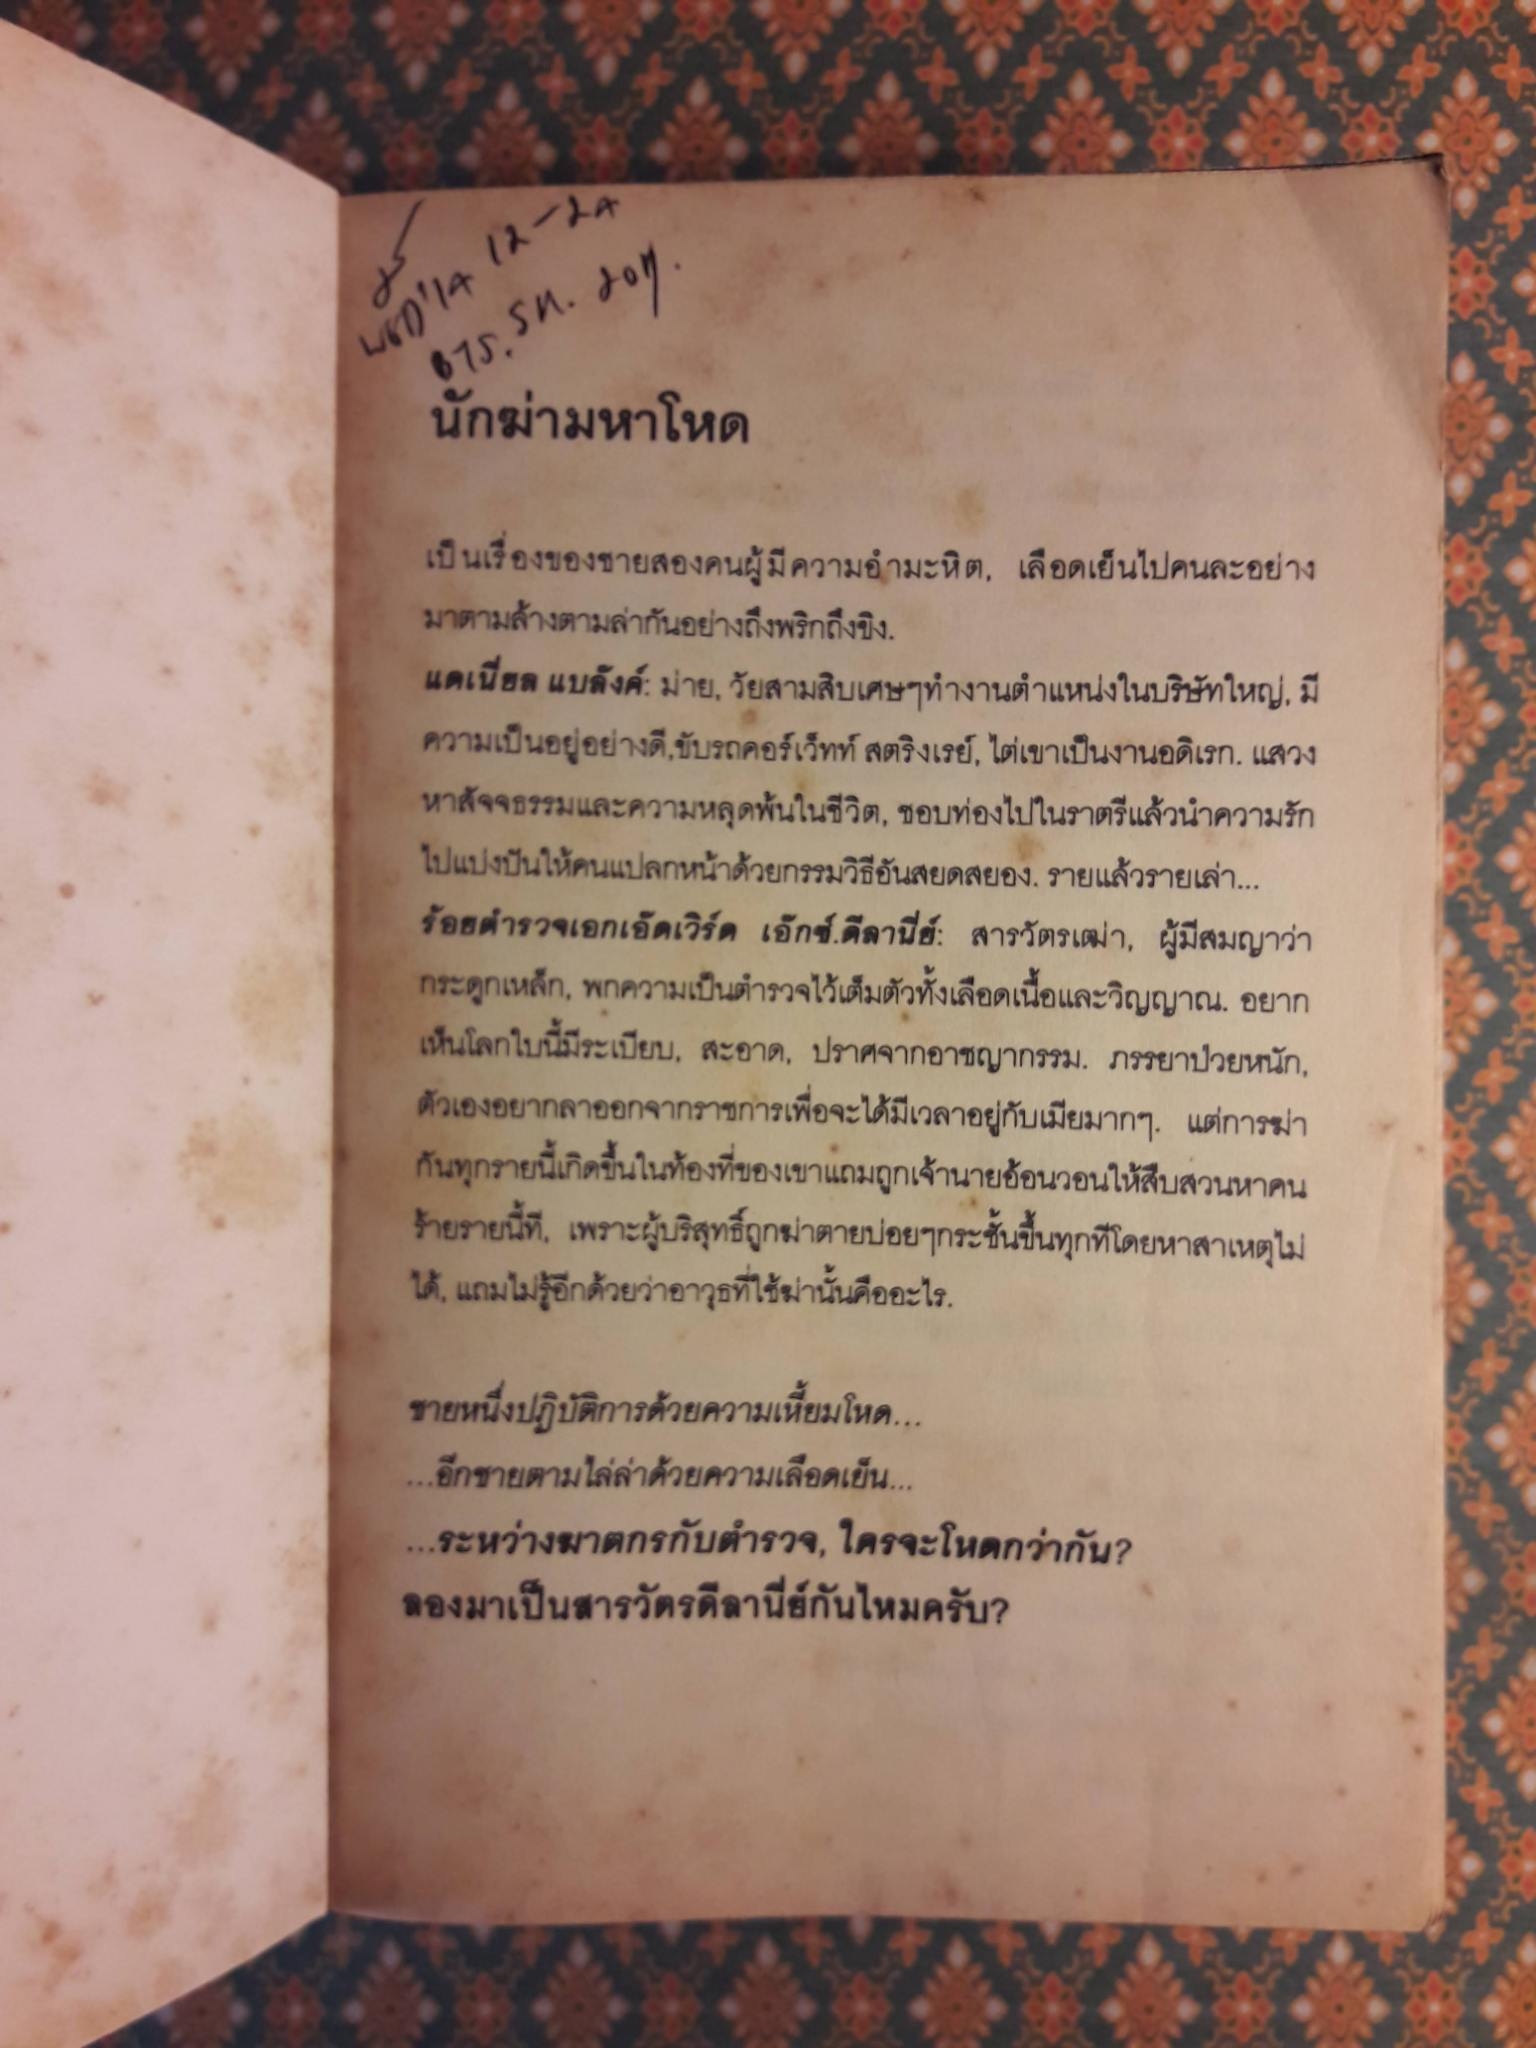 12-2A
นักฆ่ามหาโหด
เป็นเรื่องของชายสองคนผู้มีความอำมะหิต, เลือดเย็นไปคนละอย่าง
มาตามล้างตามล่ากันอย่างถึงพริกถึงขิง.
แดเนี่ยล แบลังค์: ม่าย, วัยสามสิบเศษๆทำงานตำแหน่งในบริษัทใหญ่, มี
ความเป็นอยู่อย่างดี,ขับรถคอร์เว็ทท์ สตริงเรย์, ไต่เขาเป็นงานอดิเรก. แสวง
หาสัจจธรรมและความหลุดพ้นในชีวิต, ชอบท่องไปในราตรีแล้วนำความรัก
ไปแบ่งปันให้คนแปลกหน้าด้วยกรรมวิธีอันสยดสยอง. รายแล้วรายเล่า...
ร้อยตำรวจเอกเอ๊ดเวิร์ด เอ๊กซ์.ดีลานี่ย์: สารวัตรเฒ่า, ผู้มีสมญาว่า
กระดูกเหล็ก, พกความเป็นตำรวจไว้เต็มตัวทั้งเลือดเนื้อและวิญญาณ. อยาก
เห็นโลกใบนี้มีระเบียบ, สะอาด, ปราศจากอาชญากรรม. ภรรยาป่วยหนัก,
ตัวเองอยากลาออกจากราชการเพื่อจะได้มีเวลาอยู่กับเมียมากๆ. แต่การฆ่า
กันทุกรายนี้เกิดขึ้นในท้องที่ของเขาแถมถูกเจ้านายอ้อนวอนให้สืบสวนหาคน
ร้ายรายนี้ที, เพราะผู้บริสุทธิ์ถูกฆ่าตายบ่อยๆกระชั้นขึ้นทุกทีโดยหาสาเหตุไม่
ได้, แถมไม่รู้อีกด้วยว่าอาวุธที่ใช้ฆ่านั้นคืออะไร.
ชายหนึ่งปฏิบัติการด้วยความเหี้ยมโหด...
...อีกชายตามไล่ล่าด้วยความเลือดเย็น...
...ระหว่างฆาตกรกับตำรวจ, ใครจะโหดกว่ากัน?
ลองมาเป็นสารวัตรดีลานี่ย์กันไหมครับ?